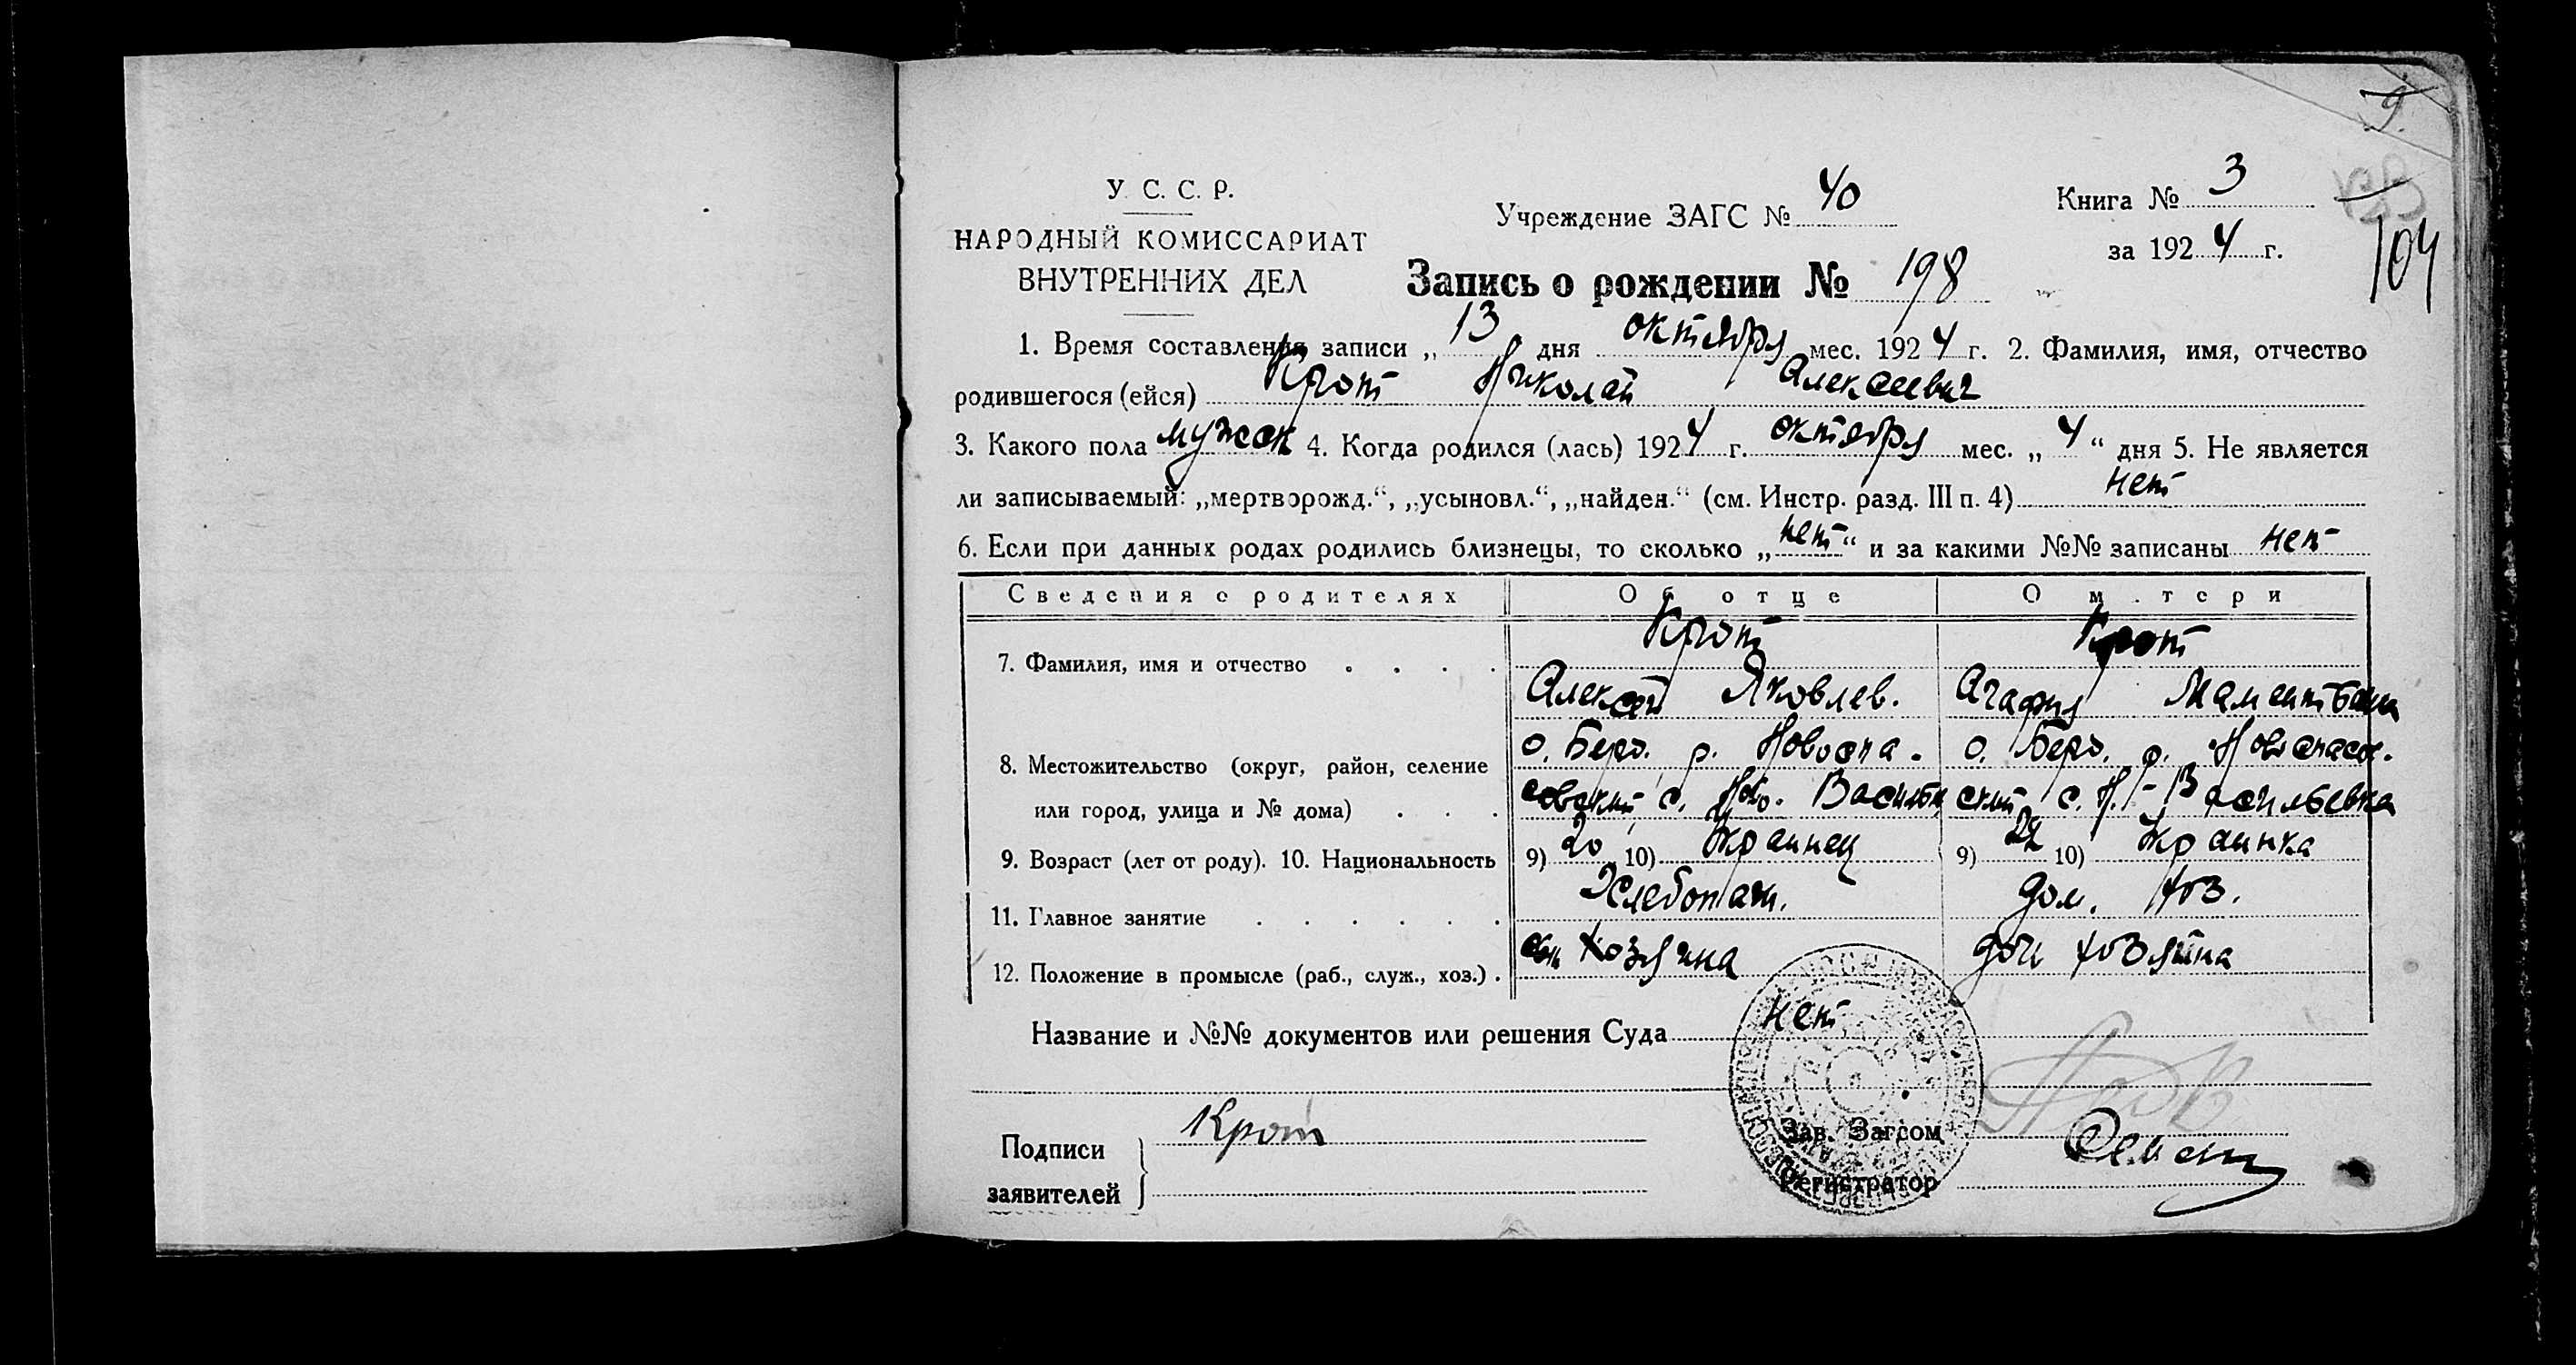 9.
У. С. С. Р.
НАРОДНЫЙ КОМИССАРИАТ
ВНУТРЕННИХ ДЕЛ
Учреждение ЗАГС № 40
Книга № 3
за 1924 г.
104
Запись о рождении № 198
1. Время составления записи „13" дня октября мес. 1924 г. 2. Фамилия, имя, отчество
родившегося (ейся) Крот Николай Алексеевич
3. Какого пола мужск 4. Когда родился (лась) 1924 г. октября мес. „4“ дня 5. Не является
ли записываемый: „мертворожд.“, „усыновл.“, „найден.“ (см. Инстр. разд. III п. 4) нет
6. Если при данных родах родились близнецы, то сколько „нет“ и за какими №№ записаны нет
Сведения о родителях Об отце О м.тери
7. Фамилия, имя и отчество . . . . Крот Крот
Алексей Яковлев. Агафия
8. Местожительство (округ, район, селение о. Берд. р. Новоспа- о. Берд. р. Новоспасов-
или город, улица и № дома) . . . совский, с. Ново- ский с. Н.-Васильевка
9. Возраст (лет от роду). 10. Национальность 9) 20 10) Украинец 9) 22 10) Украинка
11. Главное занятие . . . . . . Хлебопаш. дом. хоз.
12. Положение в промысле (раб., служ., хоз.) . сын хозяина доч хозяина
Название и №№ документов или решения Суда нет
Подписи
заявителей
Крот
Зав. Загсом
Регистратор